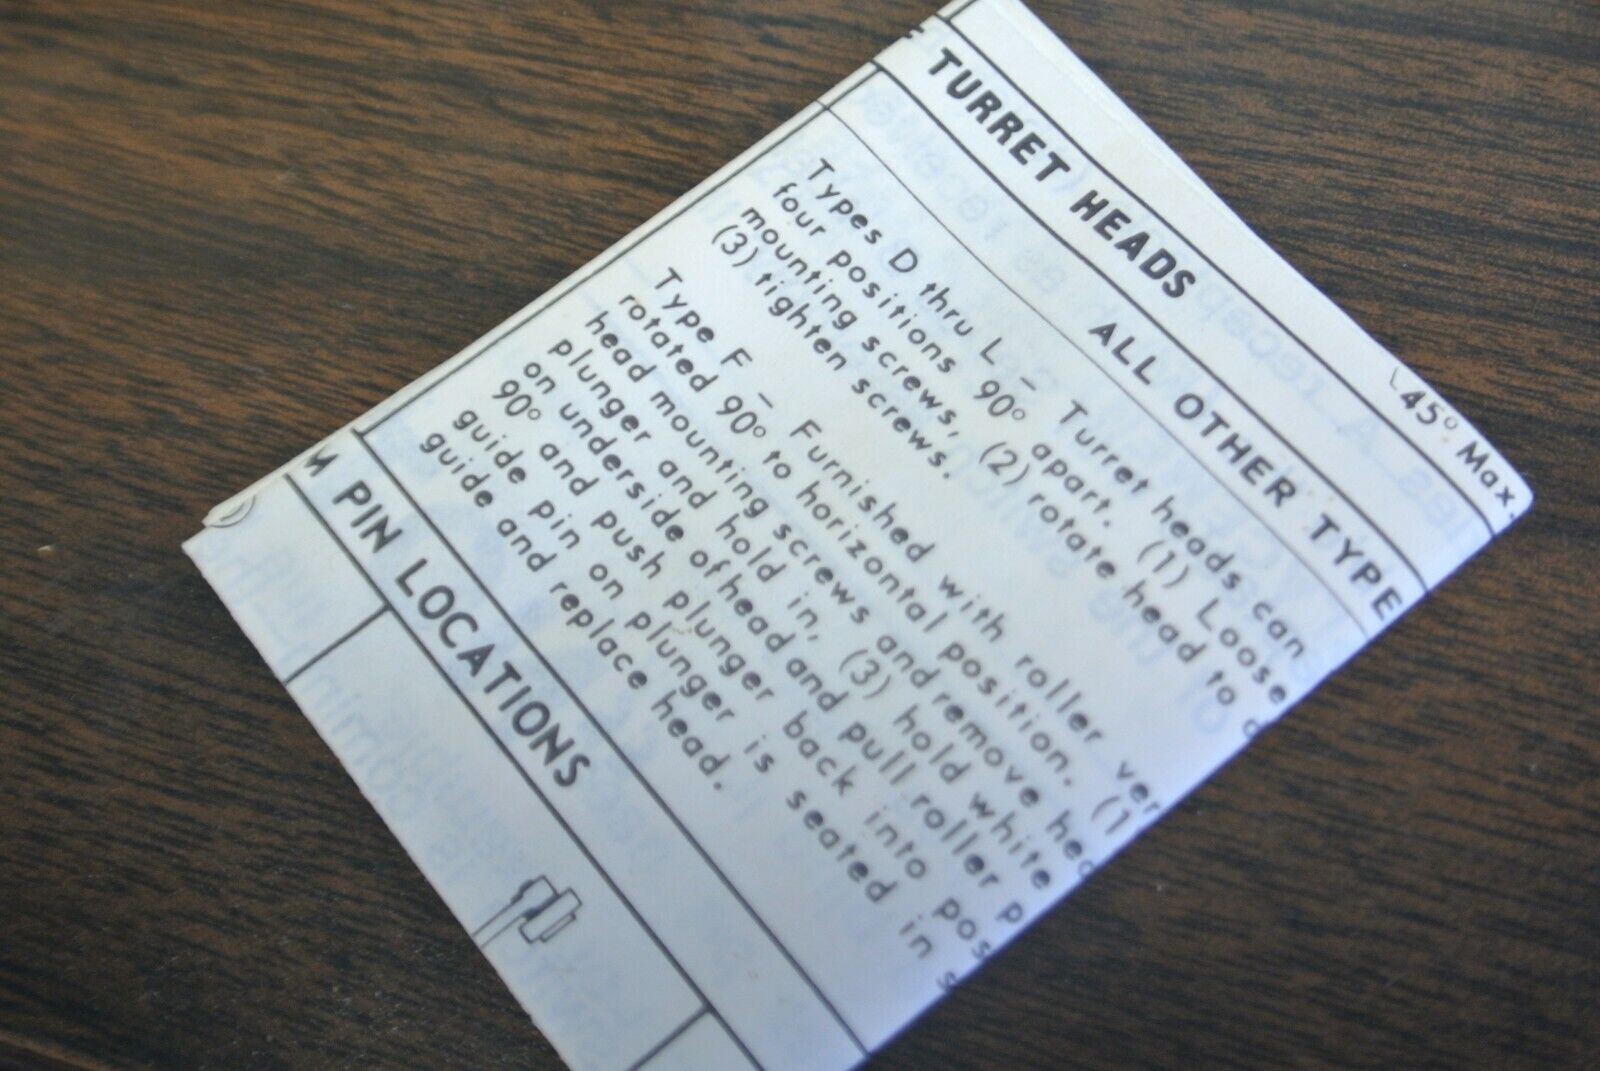 45° Max.
TURRET HEADS
ALL OTHER TYPE
Types D thru L — Turret heads can
four positions 90° apart. (1) Loose
mounting screws, (2) rotate head to
(3) tighten screws.
Type F — Furnished with roller ver
rotated 90° to horizontal position. (1
head mounting screws and remove hea
plunger and hold in, (3) hold white
on underside of head and pull roller p
90° and push plunger back into pos
guide pin on plunger is seated in s
guide and replace head.
M PIN LOCATIONS